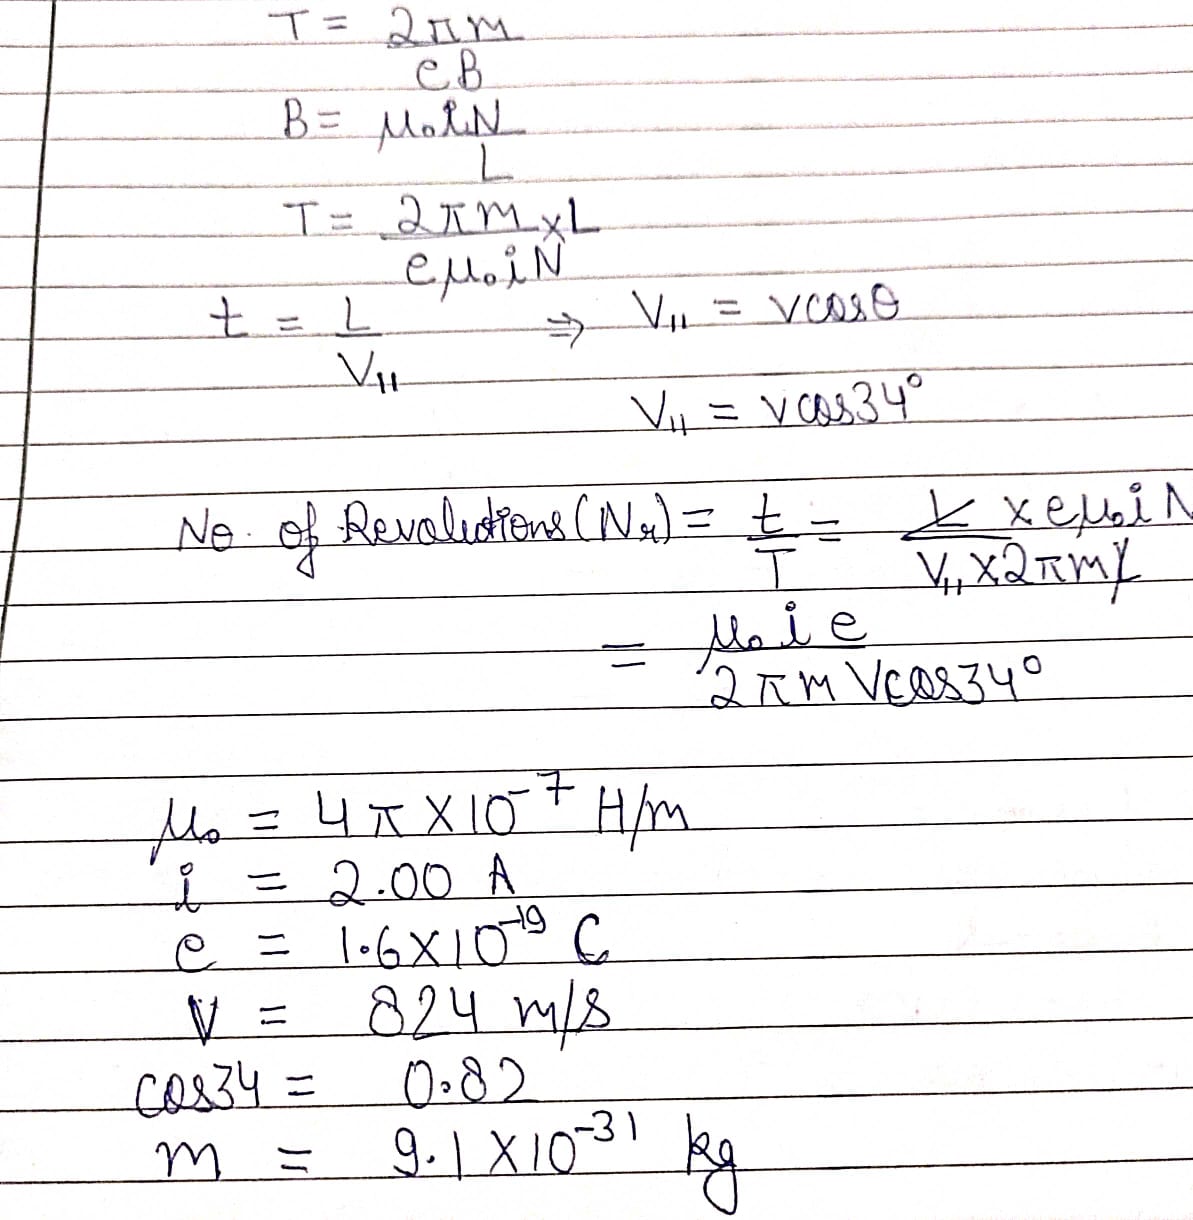 T = 2πm
eB
B = μ₀iN
L
T = 2πm × L
eμ₀iN
t = L ⇒ V₁₁ = vcosθ
V₁₁
V₁₁ = vcos34°
No. of Revolutions (Nr) = t = L × eμ₀iN
T V₁₁ × 2πmL
= μ₀ i e
2πm Vcos34°
μ₀ = 4π × 10⁻⁷ H/m
i = 2.00 A
e = 1.6×10⁻¹⁹ C
V = 824 m/s
cos34 = 0.82
m = 9.1 × 10⁻³¹ kg